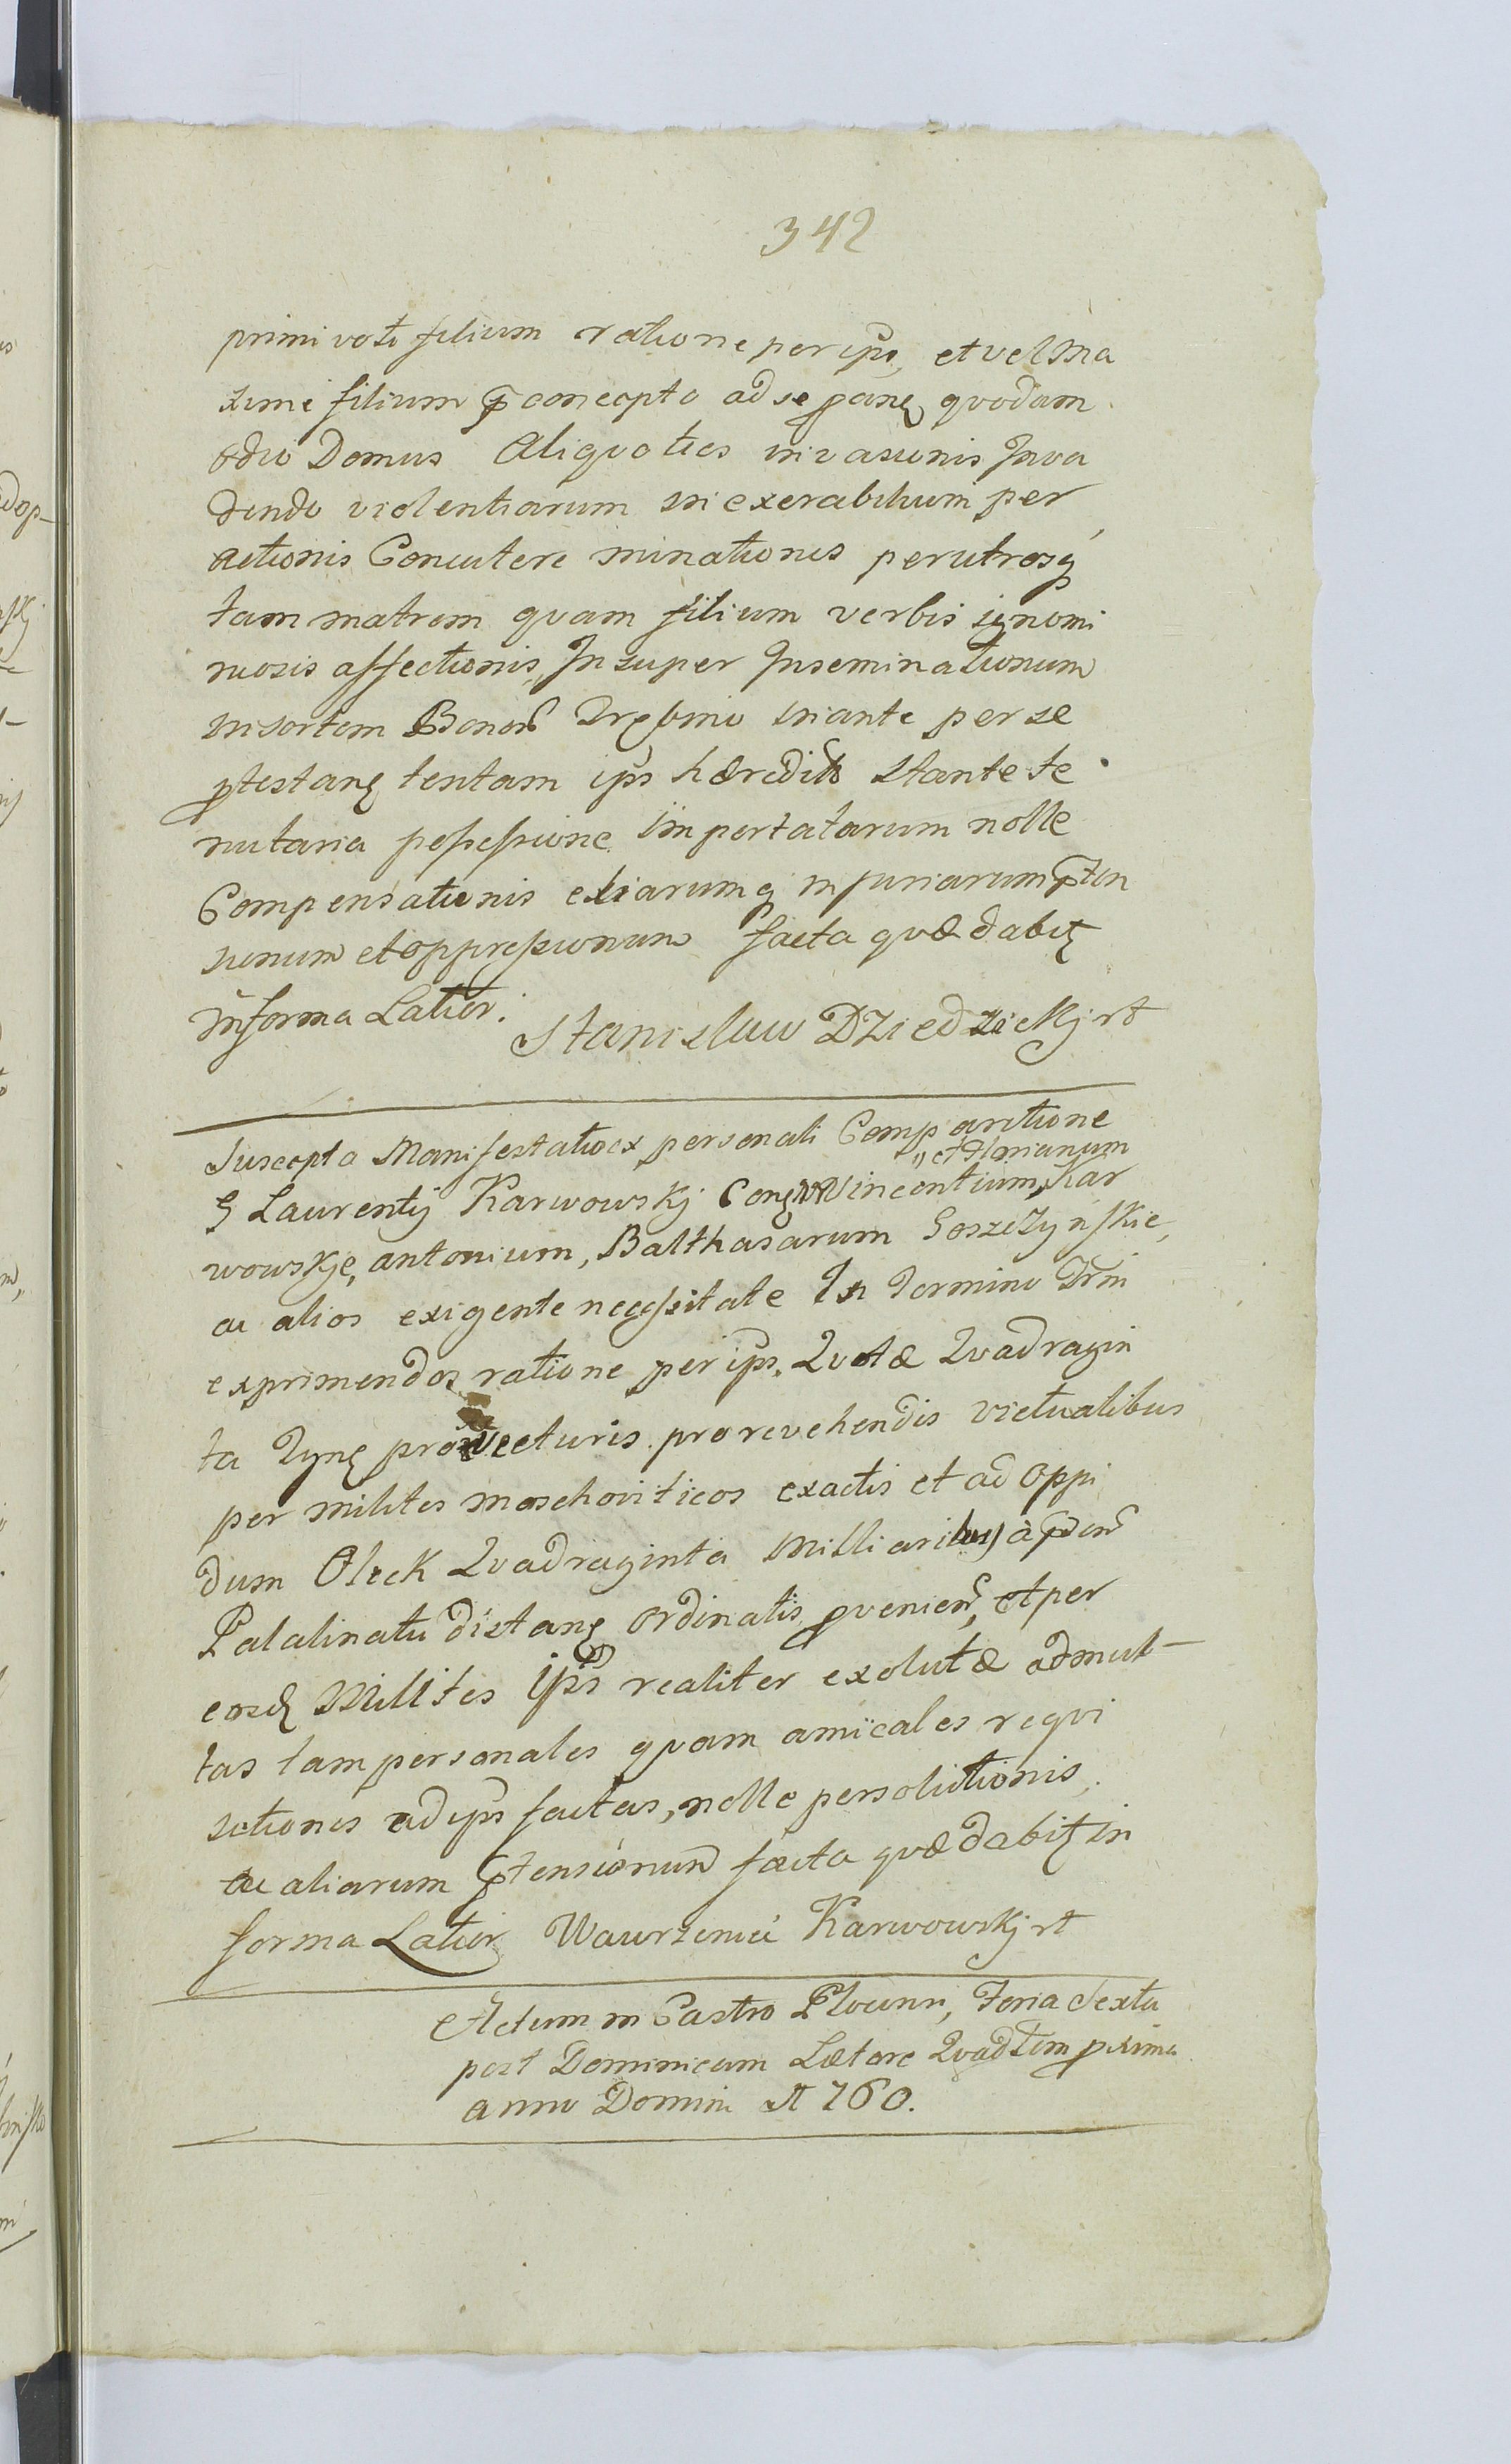 342
primi voti filium ratione per ips, et vel ma
xime filium pconcepto ad se pang quodam
odio Domus Aliquoties invasionis Inva
dendo violentiarum inexerabilium per
actionis Concutere minationes per utrosq
tam matrem quam filium verbis ignomi
niosis affectionis, Insuper Inseminationum
in sortem Bonor per se
ptestang tentam ips hæredit stante te
nutaria possessione importatarum nolle
Compensationis injuriarum pten
sionum et oppressionum facta quæ dabit
in forma Latior.
Stanislaw Dziedzickj rt
Suscepta Manifestatio ex personali Comparitione
G Laurentij Karwowskj Cong Vincentium, Kar
" et Florianum
wowskie, antonium, Balthasarum Goszczynskie,
ac alios exigente necessitate In Termino Trni
exprimendos ratione per ips. Quotæ Quadragin
ta Tynf pro vecturis pro revehendis victualibus
per milites moschoviticos exactis et ad oppi
dum Oleck Quadraginta Milliaribus à
Palatinatu distang ordinatis pvenien, et per
eosd Milites ips realiter exolutæ ad mul-
tas tam personales quam amicales requi
sitiones ad ips factas, nolle persolutionis,
ac aliarum ptensionum facta quæ dabit in
forma Latior Wawrzeniec Karwowskj rt
Actum in Castro Plocen, Feria Sexta
post Dominicam Lætare Quadlem pxima
anno Domini 1760.